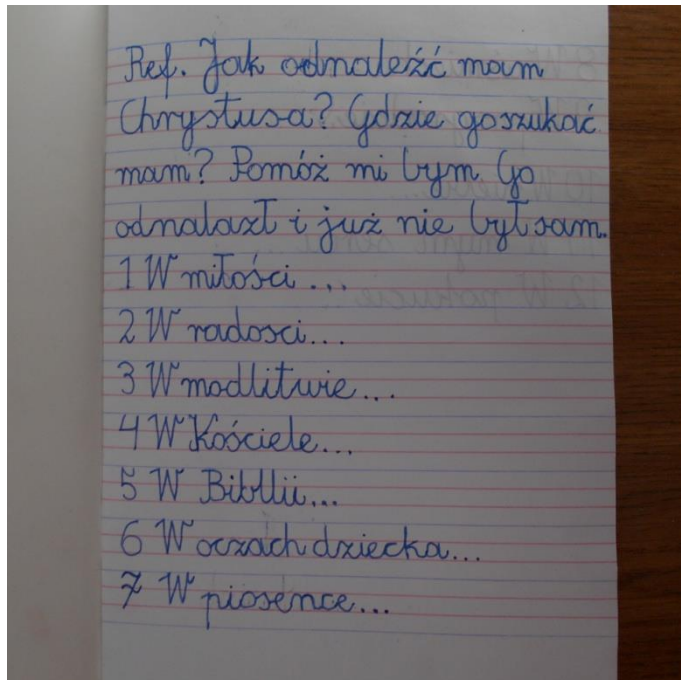 Ref. Jak odnaleźć mam
Chrystusa? Gdzie go szukać
mam? Pomóż mi bym Go
odnalazł i już nie był sam.
1 W miłości ...
2 W radosci...
3 W modlitwie...
4 W Kościele...
5 W Bibllii...
6 W oczach dziecka...
7 W piosence...